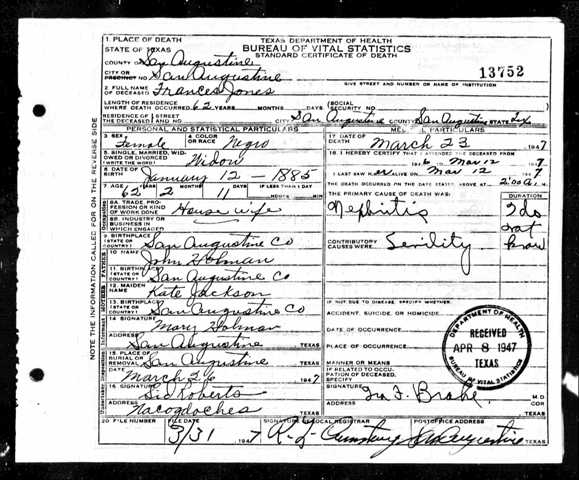 TEXAS DEPARTMENT OF HEALTH
BUREAU OF VITAL STATISTICS
STANDARD CERTIFICATE OF DEATH
1. PLACE OF DEATH
STATE OF TEXAS
COUNTY OF San Augustine
CITY OR PRECINCT San Augustine
13752
GIVE STREET AND NUMBER OR NAME OF INSTITUTION
2. FULL NAME OF DECEASED Frances Jones
LENGTH OF RESIDENCE WHERE DEATH OCCURRED 62 YEARS MONTHS DAYS (SOCIAL SECURITY NO.
RESIDENCE OF THE DECEASED STREET AND NO. CITY San Augustine COUNTY San Augustine STATE Tex
PERSONAL AND STATISTICAL PARTICULARS
3. SEX Female 4. COLOR OR RACE Negro
5. SINGLE, MARRIED, WIDOWED OR DIVORCED (WRITE THE WORD) Widow
6. DATE OF BIRTH January 12 - 1885
7. AGE 62 2 11 IF LESS THAN 1 DAY
8A. TRADE, PROFESSION OR KIND OF WORK DONE House wife
8B. INDUSTRY OR BUSINESS IN WHICH ENGAGED
9. BIRTHPLACE (STATE OR COUNTRY) San Augustine Co
10. NAME John Holman
11. BIRTHPLACE (STATE OR COUNTRY) San Augustine Co
12. MAIDEN NAME Kate Jackson
13. BIRTHPLACE (STATE OR COUNTRY) San Augustine Co
14. SIGNATURE Mary Holman
ADDRESS San Augustine TEXAS
15. PLACE OF BURIAL OR REMOVAL San Augustine TEXAS
DATE March 26 1947
16. SIGNATURE Sid Roberts
ADDRESS Nacogdoches TEXAS
MEDICAL PARTICULARS
17. DATE OF DEATH March 23 1947
18. I HEREBY CERTIFY THAT I ATTENDED THE DECEASED FROM
Mar 12 1947
I LAST SAW H ALIVE ON Mar 12 1947
THE DEATH OCCURRED ON THE DATE STATED ABOVE AT 2:00 A.M.
THE PRIMARY CAUSE OF DEATH WAS: DURATION
Nephritis
CONTRIBUTORY CAUSES WERE: Senility
IF NOT DUE TO DISEASE, SPECIFY WHETHER:
ACCIDENT, SUICIDE, OR HOMICIDE
DATE OF OCCURRENCE
PLACE OF OCCURRENCE
MANNER OR MEANS
IF RELATED TO OCCUPATION OF DECEASED, SPECIFY
SIGNATURE M.D.
ADDRESS TEXAS
DEPARTMENT OF HEALTH
RECEIVED
APR 8 1947
TEXAS
BUREAU OF VITAL STATISTICS
20. FILE NUMBER FILE DATE SIGNATURE OF LOCAL REGISTRAR POSTOFFICE ADDRESS
3/31 1947 San Augustine TEXAS
NOTE THE INFORMATION CALLED FOR ON THE REVERSE SIDE